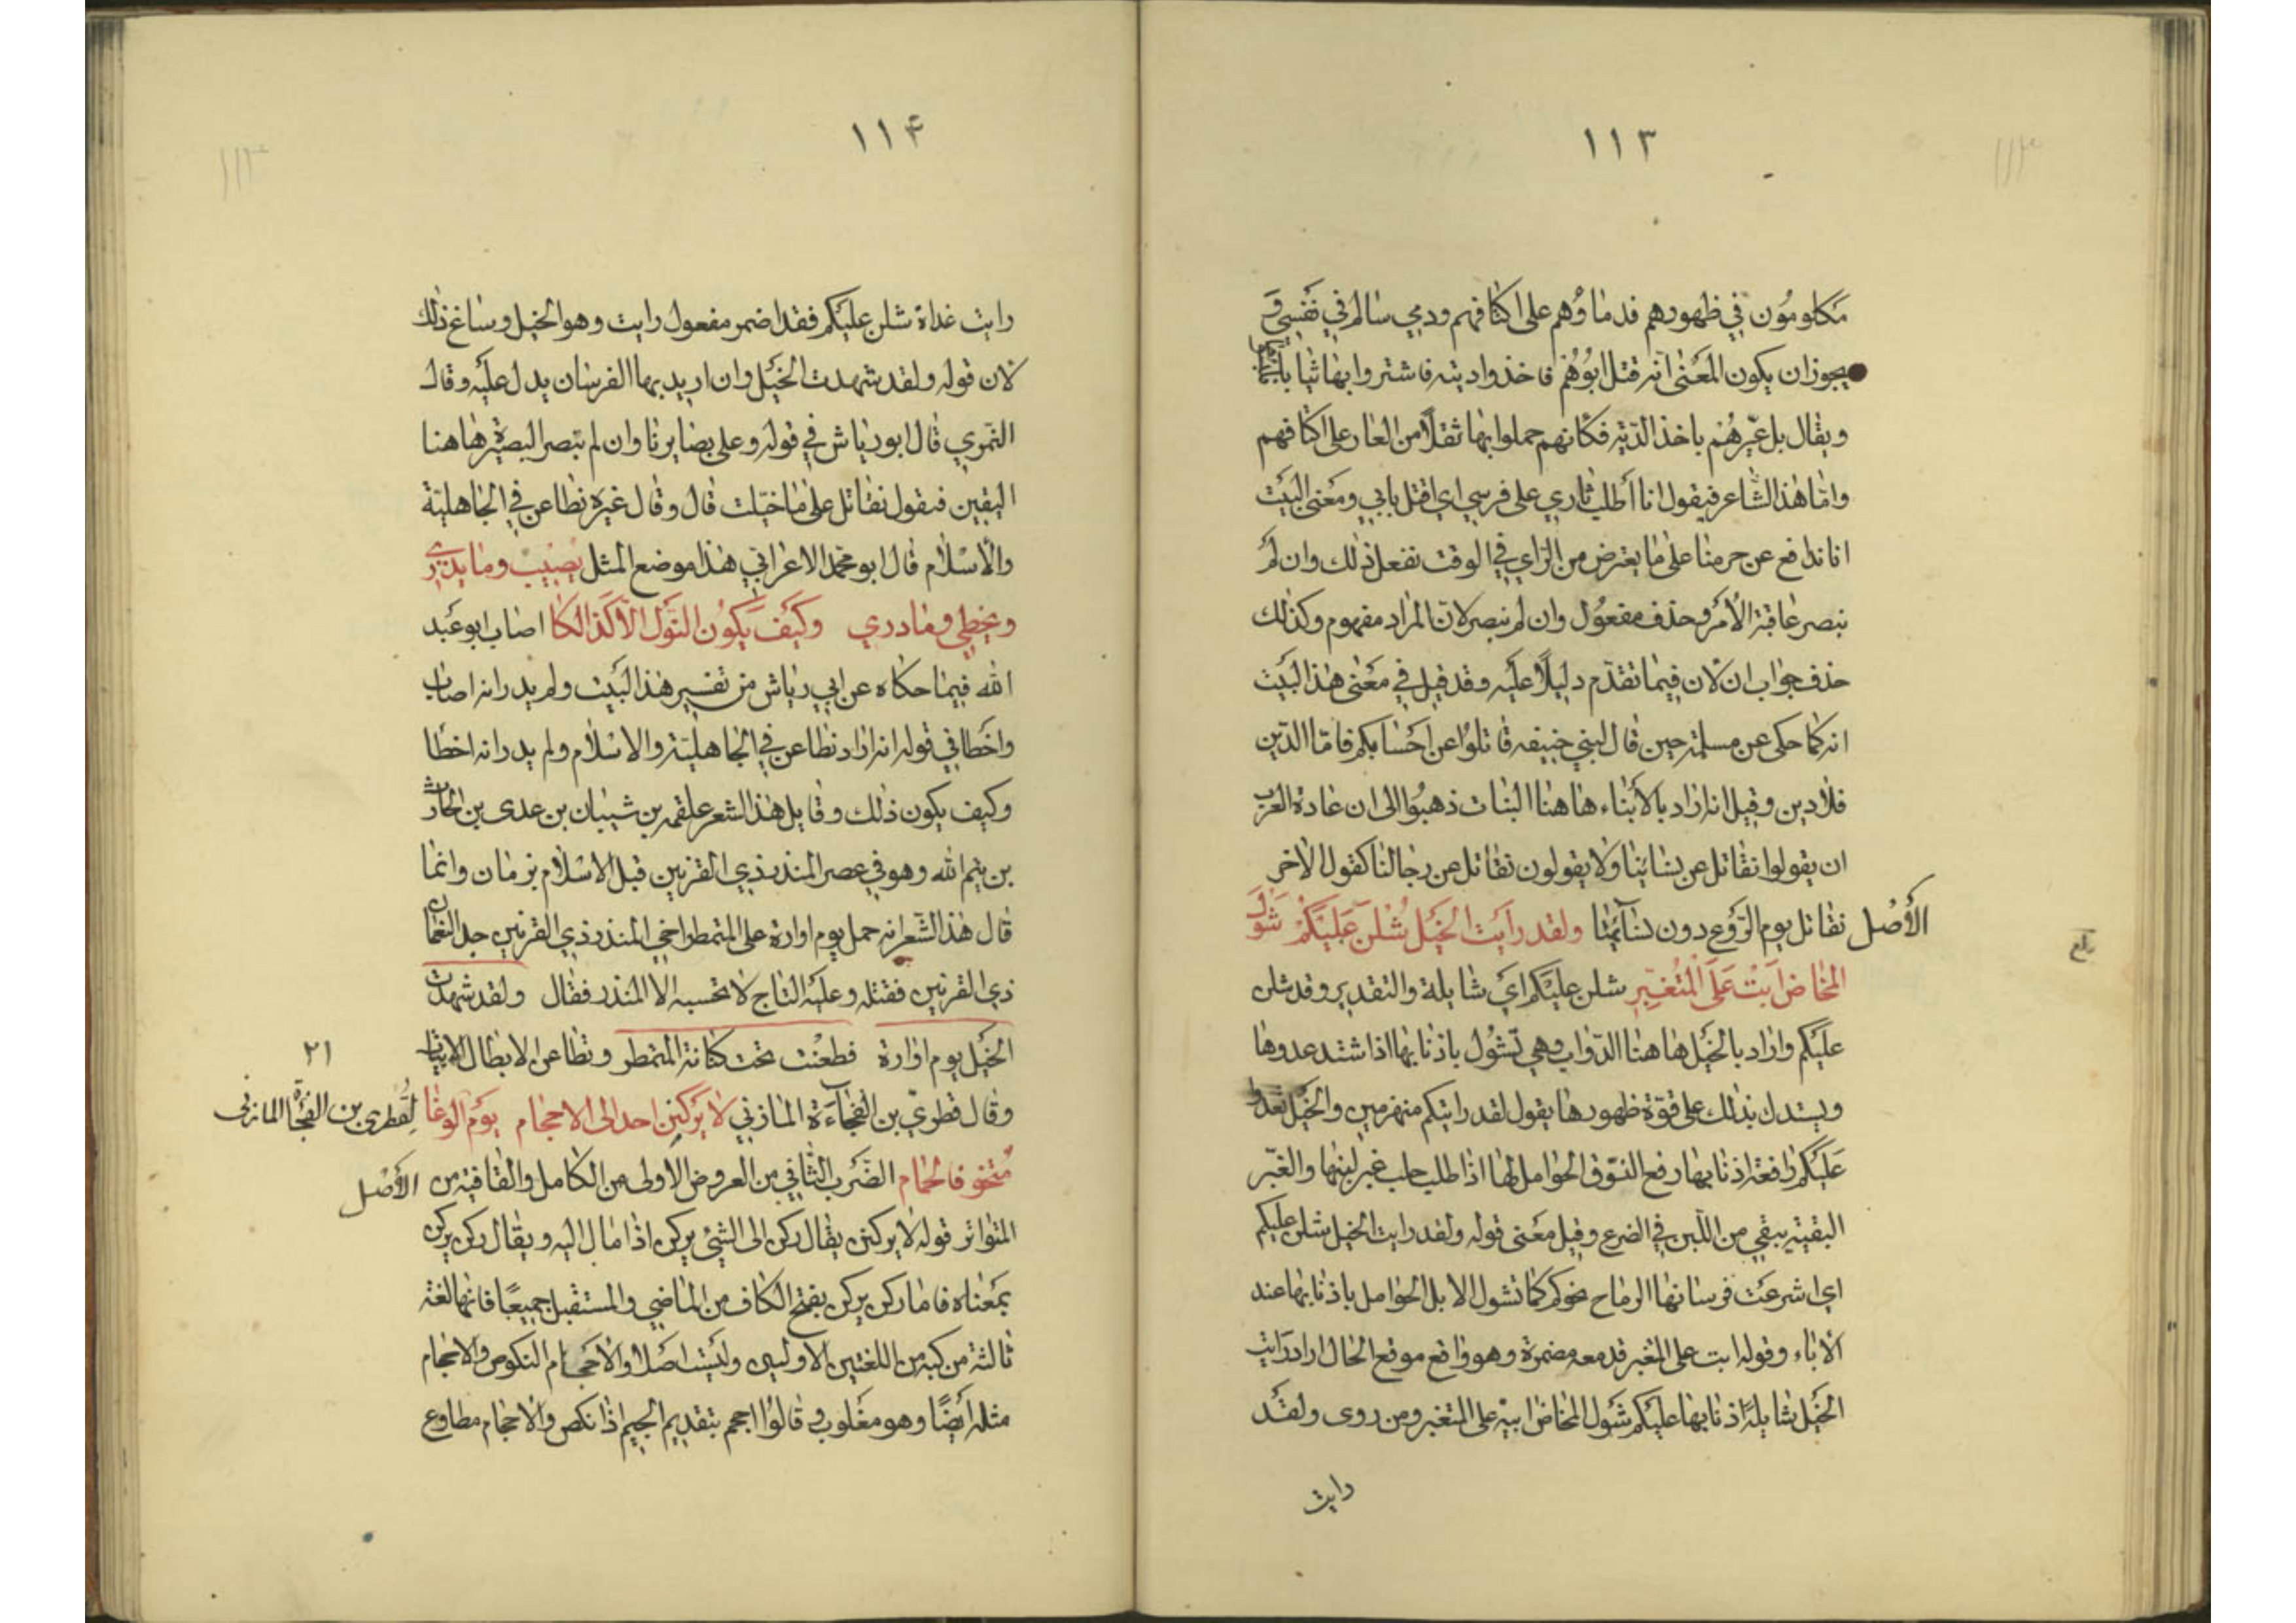 ١١٣
مكلومُون في ظهورهم فدماؤهم على اكتافهم ودمي سالم في نفسي و
يجوز ان يكون المعنى انه قتل ابوهُم فاخذوا ديته فاشتروا بها ثيابا
ويقال بل عيّرهُم باخذ الدّية فكانهم حملوا بها ثقلاً من العار على اكتافهم
وامّا هذا الشّاعر فيقول انا اطلب ثاري على فرسي اي اقتل بابي ومعنى البيت
انا ندافع عن حرمنا على ما يعترض من الراي في الوقت نفعل ذلك وان لم
نبصر عاقبة الأمر وحذف مفعُول وان لم نبصر لانّ المراد مفهوم وكذلك
حذف جواب ان لان فيما تقدّم دليلاً عليه وقد قيل في معنى هذا البيت
انه كما حكى عن مسيلمة حين قال لبني حنيفه قاتلوا عن احسابكم فامّا الدّين
فلا دين وقيل انه اراد بالأبناء هاهنا البنات ذهبُوا الى ان عادة العرب
ان يقولوا نقاتل عن نسائنا ولا يقولون نقاتل عن رجالنا كقول الاخر
الأصل
نقاتل يوم الرّوع دون نسآئنا ولقد رايت الخيل شُلن عليكُم شَولَ
المخاض ابَت على المُتغبّر شلن عليكم اي شايلة والتقدير وقد شلن
عليكم واراد بالخيل هاهنا الدّواب وهي تشُول باذنابها اذا اشتد عدوها
ويستدل بذلك على قوّة ظهورها يقول لقد رايتكم منهزمين والخيل تعدُوا
عليكم رافعة اذنابها رفع النّوق الحوامل لها اذا طلب حلب غبر لبنها والغبّر
البقية يبقي من اللّبن في الضرع وقيل معنى قوله ولقد رايت الخيل شلن عليكم
اي اشرعت فرسانها الرماح نحوكم كما تشول الابل الحوامل باذنابها عند
الأباء وقوله ابت على المتغبر قد معه مضمرة وهو واقع موقع الحال اراد رايت
الخيل شايلةً اذنابها عليكم شول المخاض ابية على المتغبر ومن روى ولقد
رايت
١١٤
رايت غداة شلن عليكم فقد اضمر مفعول رايت وهو الخيل وساغ ذلك
لان قوله ولقد شهدت الخيل وان اريد بها الفرسان يدل عليه وقال
النّمري قال ابو رياش في قوله وعلى بصايرنا وان لم نبصر البصيرة هاهنا
اليقين فيقول نقاتل على ما خيّلت قال وقال غيره نطاعن في الجاهليّة
والأسلام قال ابو محمد الاعرابي هذا موضع المثل يُصيبُ وما يدري
ويخطي وما درى وكيف يكُون النّوك الا كذالكا اصاب ابو عبد
الله فيما حكاه عن ابي رياش من تفسير هذا البيت ولم يدر انه اصاب
واخطا في قوله انه اراد نطاعن في الجاهليّة والاسلام ولم يدر انه اخطا
وكيف يكون ذلك وقايل هذا الشعر علقمه بن شيبان بن عدى بن الحارث
بن تيم الله وهو في عصر المنذر ذي القرنين قبل الاسلام بزمان وانما
قال هذا الشّعر انه حمل يوم اوارة على المتمطر اخي المنذر ذي القرنين جد النعمان
ذي القرنين فقتله وعليه التاج لا نحسبه الا المنذر فقال ولقد شهدت
الخيل يوم اوارة فطعنت تحت كنانة المتمطر ونطاعن الابطال الابيات
٢١
وقال قطريّ بن الفجآءة المازني لا يركنن احد الى الاحجام يوم الوغا
لقطرى بن الفجاة المازنى
متخوفا لحمام الضرب الثّاني من العروض الاولى من الكامل والقافية من
الأصل
المتواتر قوله لا يركنن يقال ركن الى الشيئ يركن اذا مال اليه ويقال ركن يركن
بمعناه فاما ركن يركن بفتح الكاف من الماضي والمستقبل جميعًا فانها لغة
ثالثة مركبة من اللغتين الأوليين وليست اصلا والأحجام النكوص والاجحام
مثله ايضًا وهو مقلوب وقالوا اجحم بتقديم الجيم اذا نكص والاحجام مطاوع